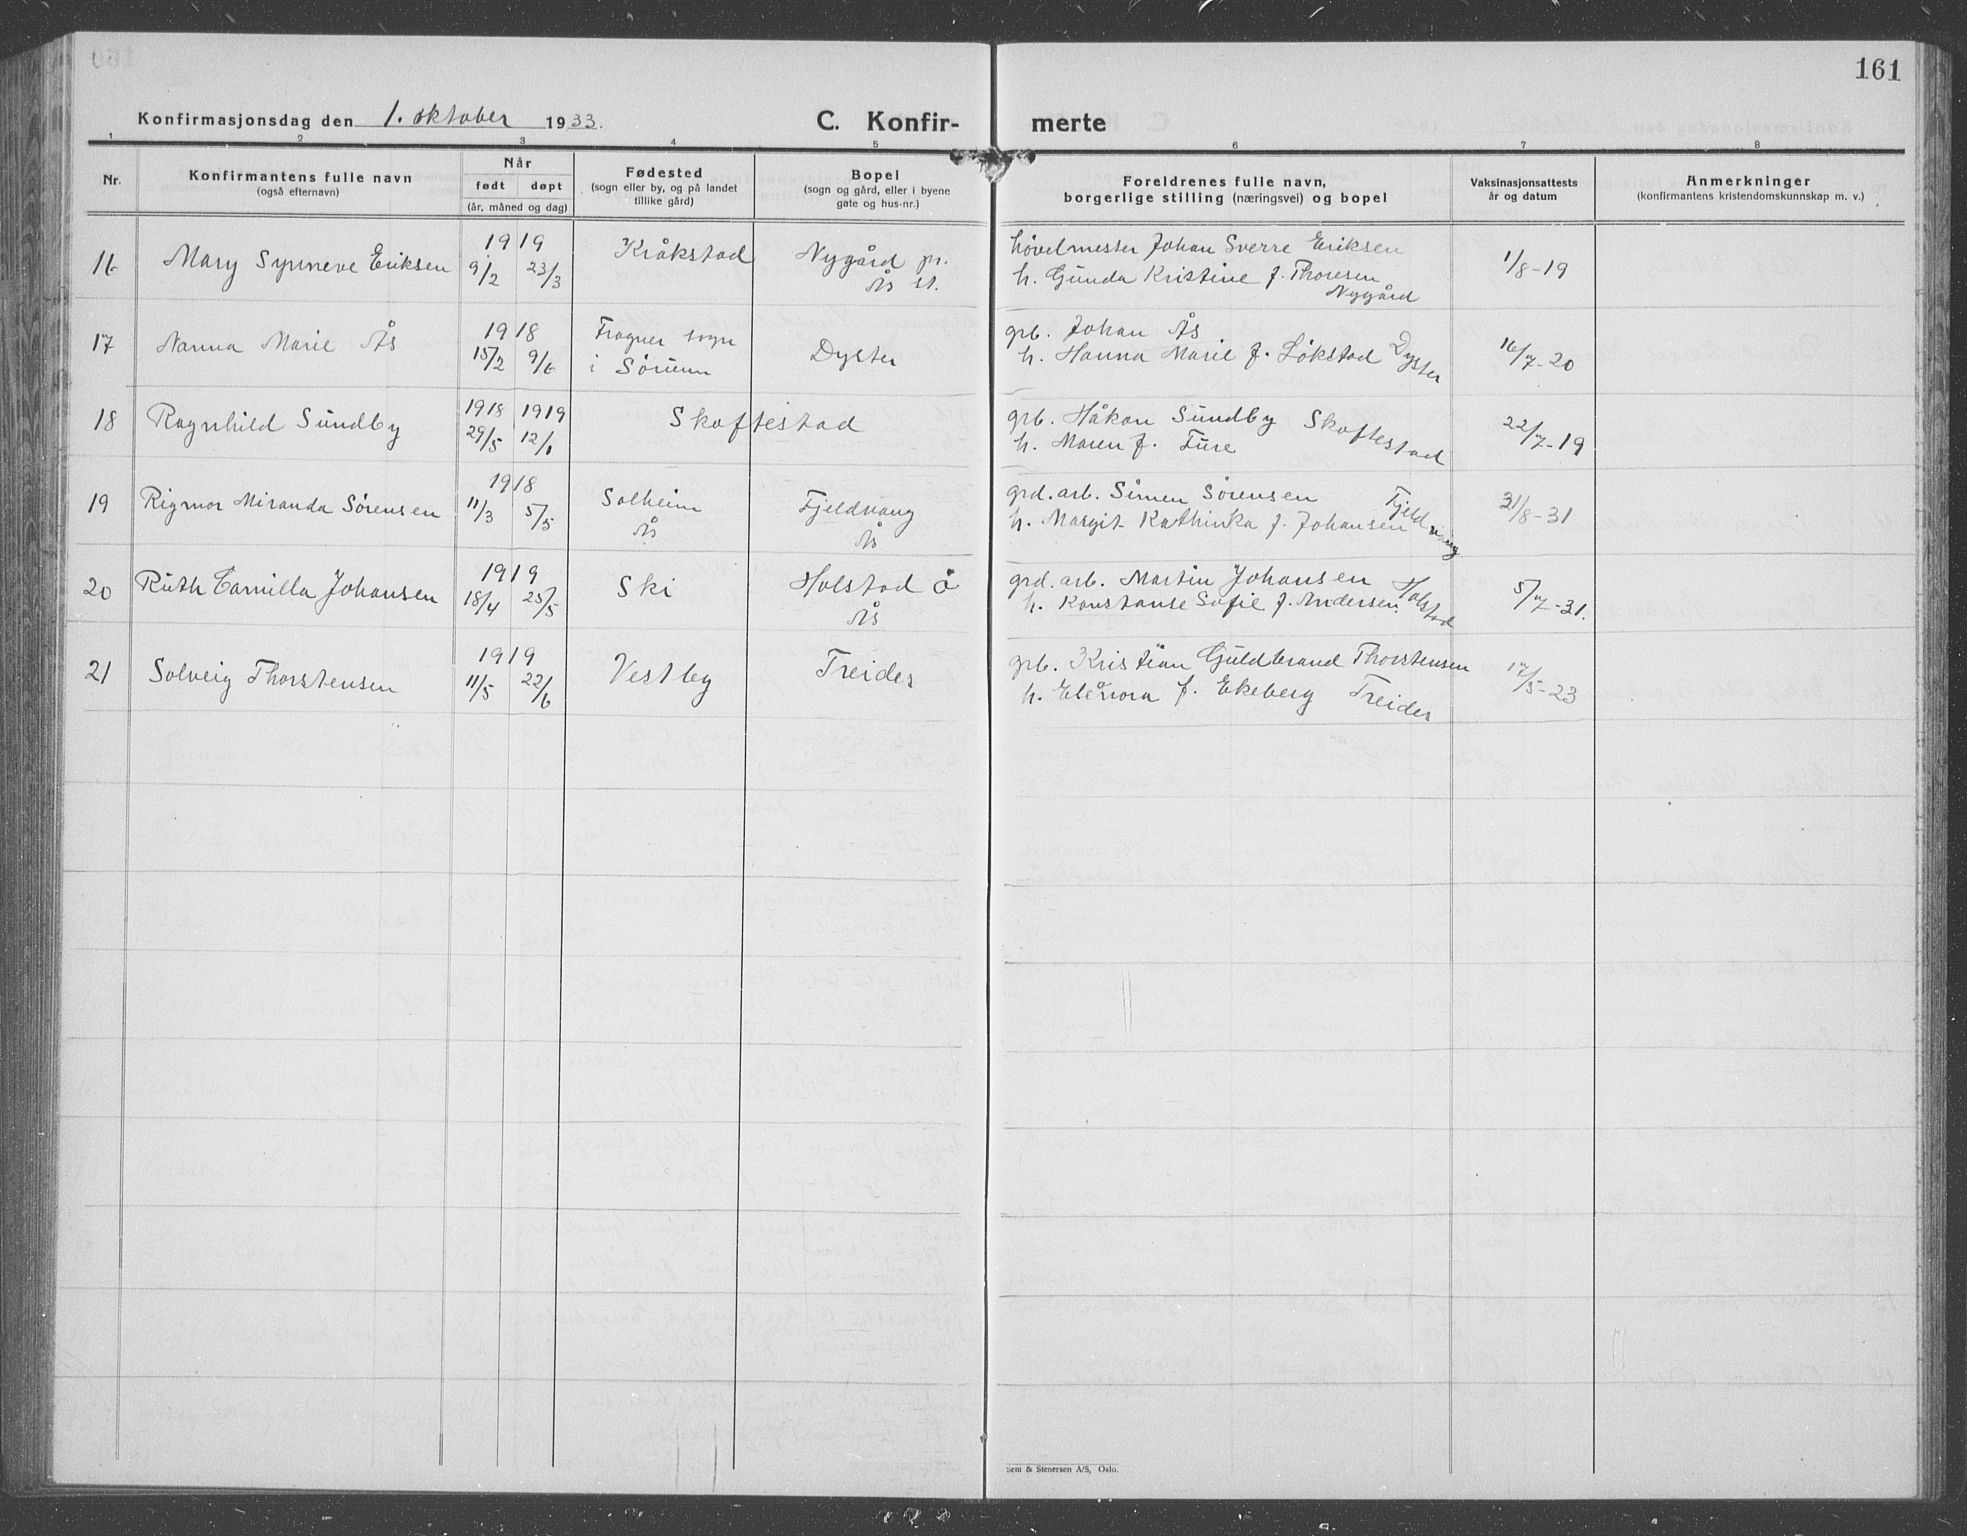 161
Konfirmasjonsdag den 1. oktober 1933.
C. Konfir- merte
1 2 3 4 5 6 7 8
Nr.
Konfirmantens fulle navn
(også efternavn)
Når
født døpt
(år, måned og dag)
Fødested
(sogn eller by, og på landet
tillike gård)
Bopel
(sogn og gård, eller i byene
gate og hus-nr.)
Foreldrenes fulle navn,
borgerlige stilling (næringsvei) og bopel
Vaksinasjonsattests
år og datum
Anmerkninger
(konfirmantens kristendomskunnskap m. v.)
16 Mary Synneve Eriksen 1919 9/2 23/3 Kråkstad Nygård pr. Ås st.
høvelmester Johan Sverre Eriksen
h. Gunda Kristine f. Thoresen
Nygård
1/8-19
17 Nanna Marie Ås 1918 15/2 9/6 Frogner sogn i Sørum Dyster
grb. Johan Ås
h. Hanna Marie f. Løkstad Dyster
16/7-20
18 Ragnhild Sundby 1918 29/5 1919 12/1 Skoftestad
grb. Håkon Sundby Skoftestad
h. Maren f. Ture
22/7-19
19 Rigmor Miranda Sørensen 1918 11/3 5/5 Solheim Ås Fjeldvang Ås
grd. arb. Simen Sørensen Fjeldvang
h. Margit Kathinka f. Johansen
31/8-31
20 Ruth Camilla Johansen 1919 18/4 25/5 Ski Holstad ö Ås
grd. arb. Martin Johansen Holstad
h. Konstanse Sofie f. Andersen.
5/7-31.
21 Solveig Thorstensen 1919 11/5 22/6 Vestby Treider
grb. Kristian Guldbrand Thorstensen
h. Elenora f. Ekeberg Treider
17/5-23
Sem & Stenersen A/S, Oslo.